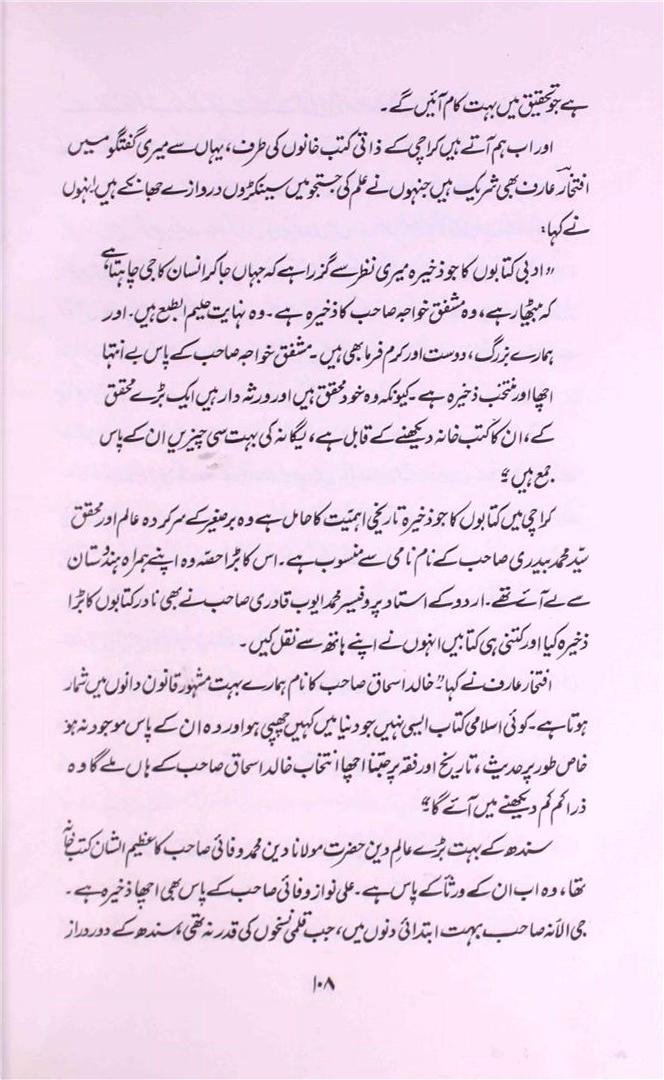 ہے جو تحقیق میں بہت کام آئیں گے۔
اور اب ہم آتے ہیں کراچی کے ذاتی کتب خانوں کی طرف، یہاں سے میری گفتگو میں
افتخار عارف بھی شریک ہیں جنہوں نے علم کی جستجو میں سینکڑوں دروازے جھانکے ہیں انہوں
نے کہا:
"ادبی کتابوں کا جو ذخیرہ میری نظر سے گزرا ہے کہ جہاں جا کر انسان کا جی چاہتا ہے
کہ بیٹھا رہے، وہ مشفق خواجہ صاحب کا ذخیرہ ہے۔ وہ نہایت حلیم الطبع ہیں۔ اور
ہمارے بزرگ، دوست اور کرم فرما بھی ہیں۔ مشفق خواجہ صاحب کے پاس بے انتہا
اچھا اور منتخب ذخیرہ ہے۔ کیونکہ وہ خود محقق ہیں اور ورثہ دار ہیں ایک بڑے محقق
کے، ان کا کتب خانہ دیکھنے کے قابل ہے، یگانہ کی بہت سی چیزیں ان کے پاس
جمع ہیں"
کراچی میں کتابوں کا جو ذخیرہ تاریخی اہمیّت کا حامل ہے وہ برصغیر کے سرکردہ عالم اور محقق
سیّد محمد بیدری صاحب کے نام نامی سے منسوب ہے۔ اس کا بڑا حصّہ وہ اپنے ہمراہ ہندُستان
سے لے آئے تھے۔ اردو کے استاد پروفیسر محمد ایوب قادری صاحب نے بھی نادر کتابوں کا بڑا
ذخیرہ کیا اور کتنی ہی کتابیں انہوں نے اپنے ہاتھ سے نقل کیں۔
افتخار عارف نے کہا "خالد اسحاق صاحب کا نام ہمارے بہت مشہور قانون دانوں میں شمار
ہوتا ہے۔ کوئی اسلامی کتاب ایسی نہیں جو دنیا میں کہیں چھپی ہو اور وہ ان کے پاس موجود نہ ہو
خاص طور پر حدیث، تاریخ اور فقہ پر جتنا اچھا انتخاب خالد اسحاق صاحب کے ہاں ملے گا وہ
ذرا کم کم دیکھنے میں آئے گا"
سندھ کے بہت بڑے عالم دین حضرت مولانا دین محمد وفائی صاحب کا عظیم الشان کتب خانہ
تھا، وہ اب ان کے ورثأ کے پاس ہے۔ علی نواز وفائی صاحب کے پاس بھی اچھا ذخیرہ ہے۔
جی الانہ صاحب بہت ابتدائی دنوں میں، جب قلمی نسخوں کی قدر نہ تھی، سندھ کے دور دراز
۱۰۸